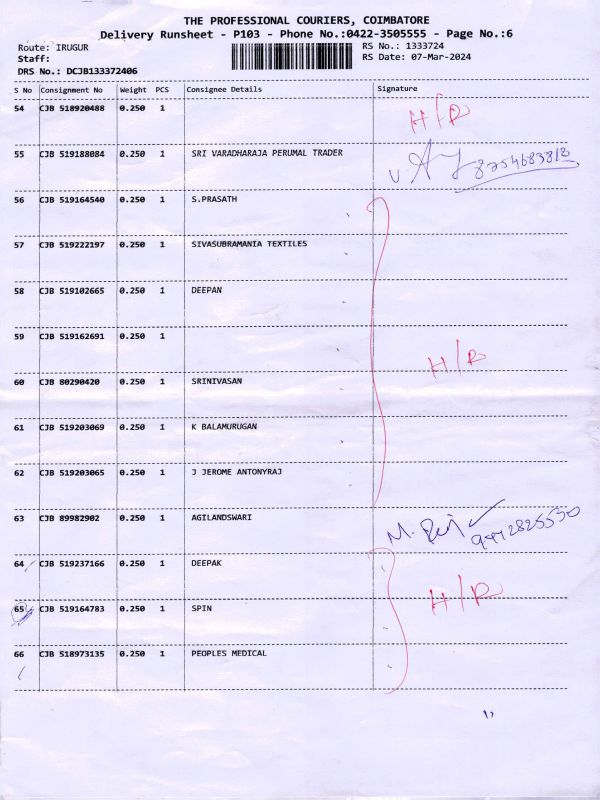 THE PROFESSIONAL COURIERS, COIMBATORE
Delivery Runsheet - P103 - Phone No.:0422-3505555 - Page No.:6
Route: IRUGUR
RS No.: 1333724
Staff:
RS Date: 07-Mar-2024
DRS No.: DCJB133372406
S No Consignment No Weight PCS Consignee Details Signature
54 CJB 518920488 0.250 1 H/R
55 CJB 519188084 0.250 1 SRI VARADHARAJA PERUMAL TRADER 8754683818
56 CJB 519164540 0.250 1 S.PRASATH
57 CJB 519222197 0.250 1 SIVASUBRAMANIA TEXTILES
58 CJB 519102665 0.250 1 DEEPAN
59 CJB 519162691 0.250 1 H/R
60 CJB 80290420 0.250 1 SRINIVASAN
61 CJB 519203069 0.250 1 K BALAMURUGAN
62 CJB 519203065 0.250 1 J JEROME ANTONYRAJ
63 CJB 89982902 0.250 1 AGILANDSWARI
64 CJB 519237166 0.250 1 DEEPAK
65 CJB 519164783 0.250 1 SPIN H/R
66 CJB 518973135 0.250 1 PEOPLES MEDICAL